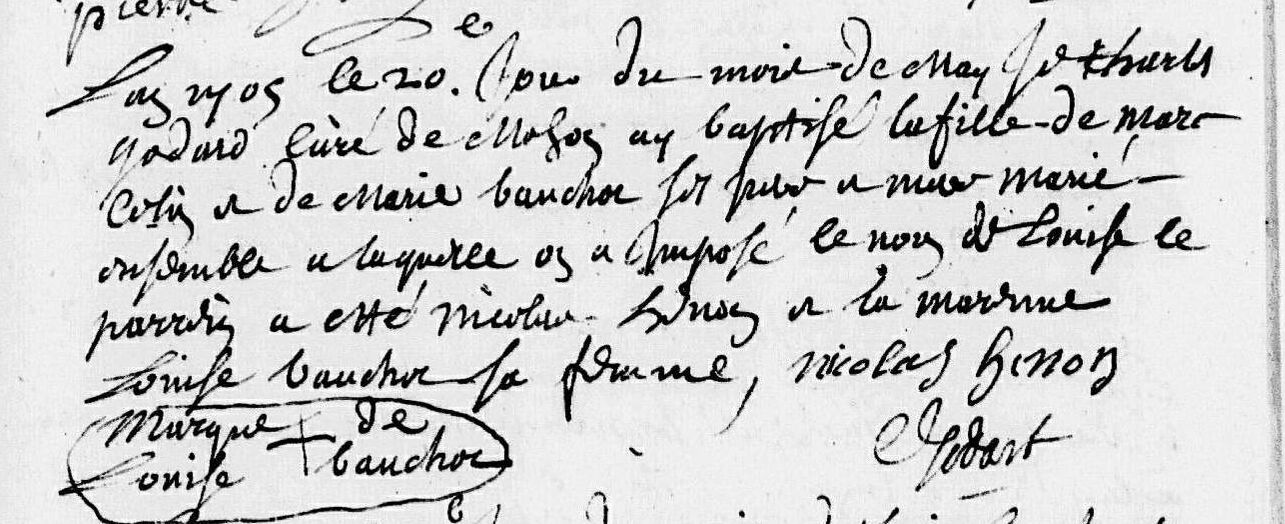 pierre
Lan 1705 le 20. Jour du mois de May Je Charles
godard Curé de Mohon ay baptisé la fille de Marc
Colin et de Marie bauchot ses pere et mere marié
ensemble a laquelle on a Imposé le nom de Louise le
parrein a esté Nicolas henon et la marenne
Louise bauchot sa femme, nicolas henon
Marque de
Louise + bauchot
C godart